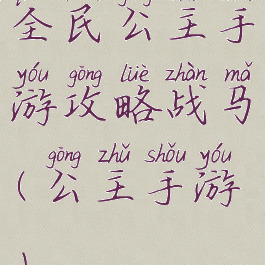 全民公主手
yóu gōng lüè zhàn mǎ
游攻略战马
gōng zhǔ shǒu yóu
(公主手游
)